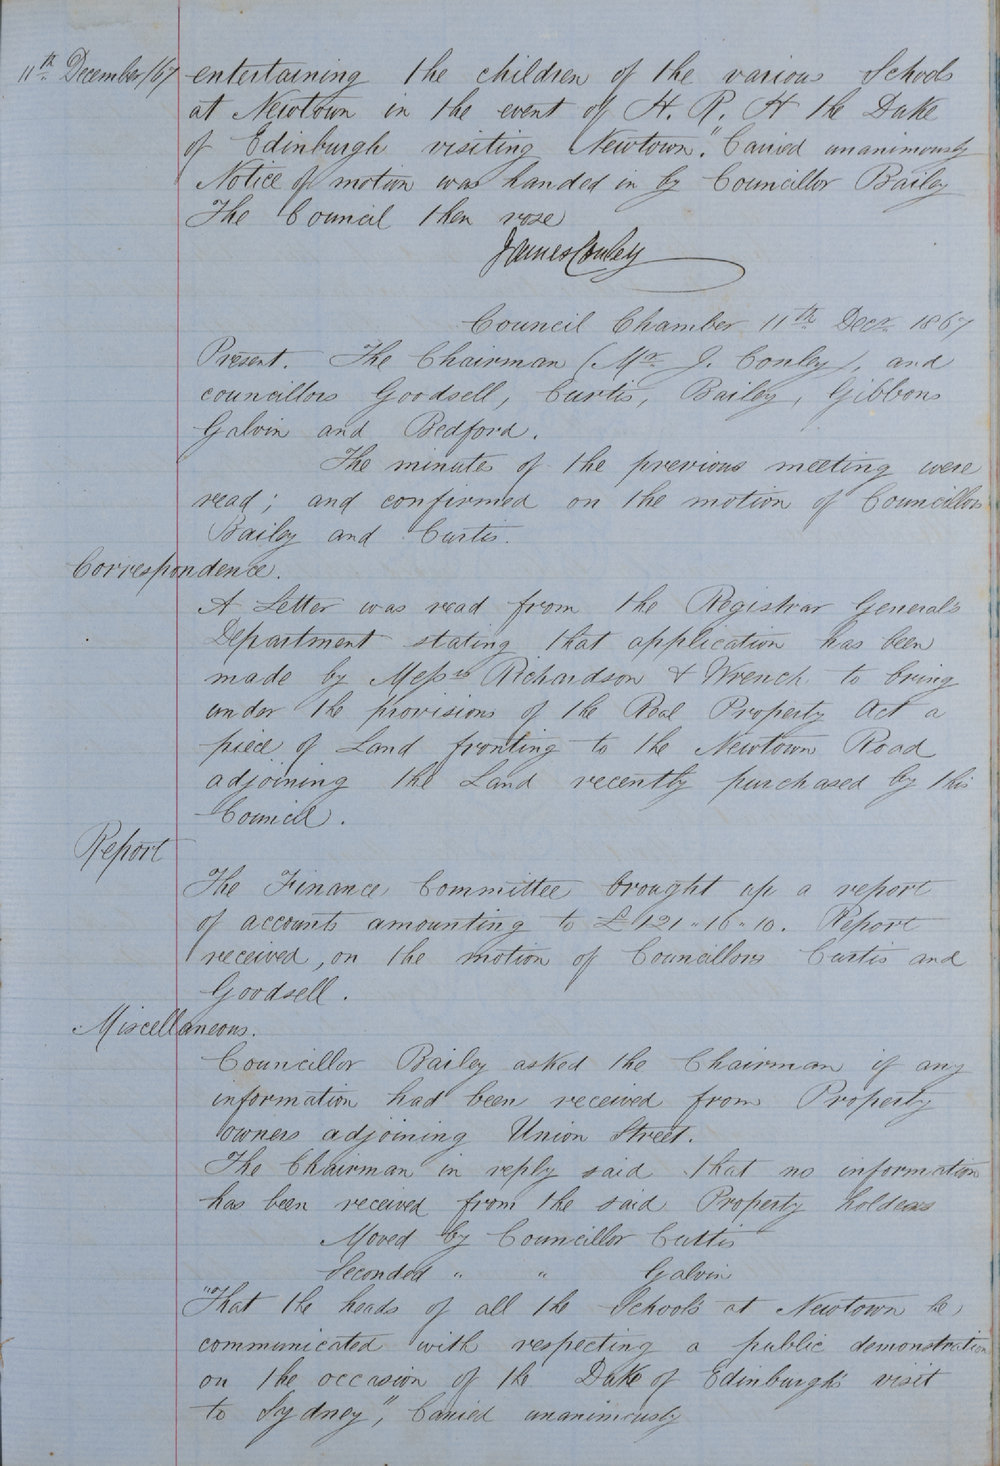 11th December/67 entertaining the children of the various Schools
at Newtown in the event of H. R. H the Duke
of Edinburgh visiting Newtown". Carried unanimously
Notice of motion was handed in by Councillor Bailey
The Council then rose
James Conley
Council Chamber 11th Decr 1867
Present. The Chairman (Mr J. Conley), and
councillors Goodsell, Curtis, Bailey, Gibbons
Galvin and Bedford.
The minutes of the previous meeting were
read; and confirmed on the motion of Councillors
Bailey and Curtis.
Correspondence.
A Letter was read from the Registrar General's
Department stating that application has been
made by Messrs Richardson & Wrench to bring
under the provisions of the Real Property Act a
piece of Land fronting to the Newtown Road
adjoining the Land recently purchased by this
Council.
Report
The Finance Committee brought up a report
of accounts amounting to £121"16"10. Report
received, on the motion of Councillors Curtis and
Goodsell.
Miscellaneous.
Councillor Bailey asked the Chairman if any
information had been received from Property
owners adjoining Union Street.
The Chairman in reply said that no information
has been received from the said Property holders
Moved by Councillor Curtis
Seconded " " Galvin
"That the heads of all the Schools at Newtown be
communicated with respecting a public demonstration
on the occasion of the Duke of Edinburgh's visit
to Sydney", Carried unanimously